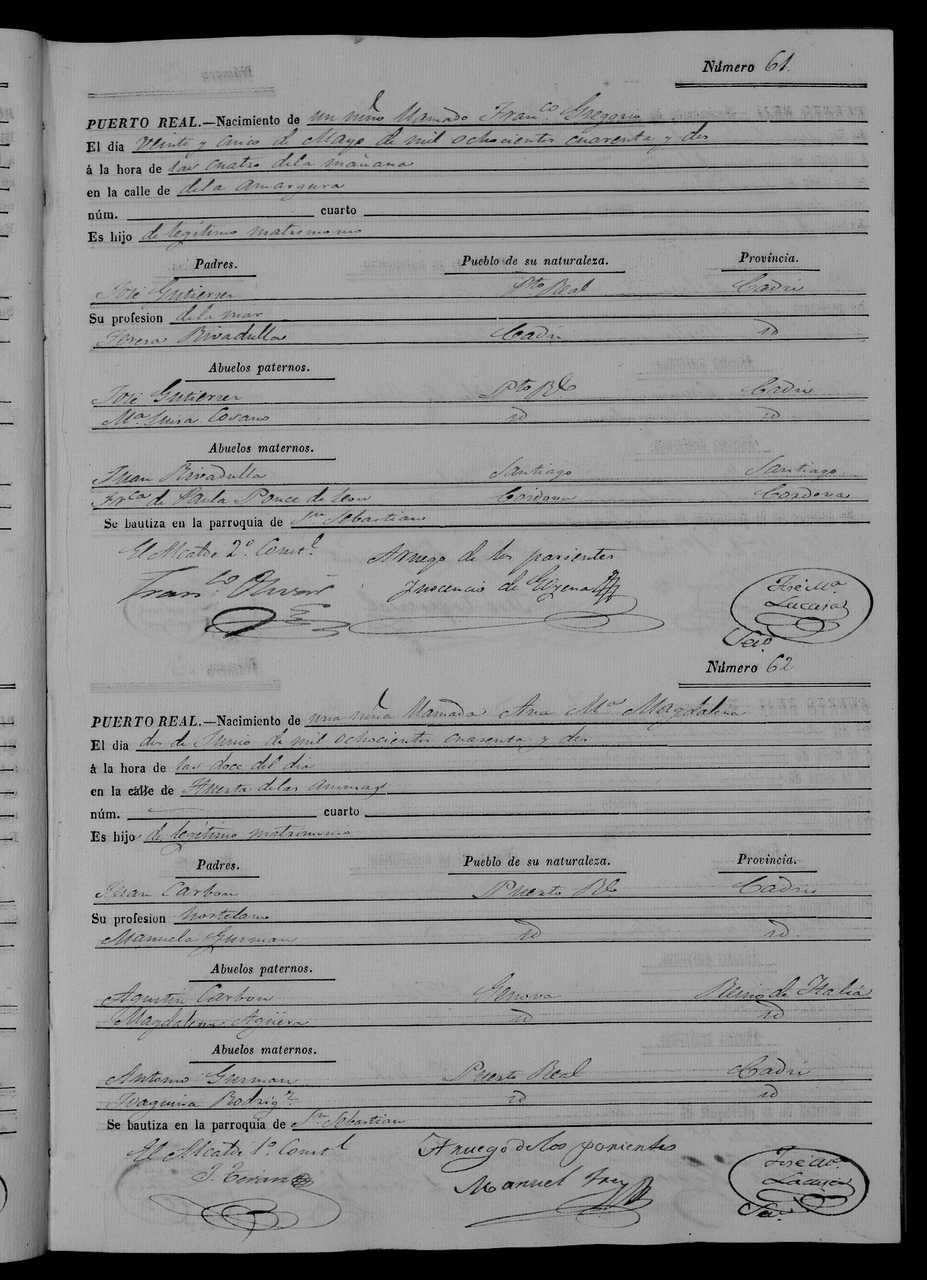 Número 61.
PUERTO REAL.—Nacimiento de un niño llamado Franco Gregorio
El dia veinte y cinco de Mayo de mil ochocientos cuarenta y dos
á la hora de las cuatro dela mañana
en la calle de dela Amargura
núm. cuarto
Es hijo de legítimo matrimonio
Padres. Pueblo de su naturaleza. Provincia.
José Gutierrez Pto Real Cadiz
Su profesion dela mar
Teresa Rivadulla Cadiz id
Abuelos paternos.
José Gutierrez Pto Rl Cadiz
Ma Luisa Cosano id id
Abuelos maternos.
Juan Rivadulla Santiago Santiago
Frca de Paula Ponce de Leon Cordova Cordova
Se bautiza en la parroquia de Sn Sebastian
El Alcalde 2o Constl Aruego de los parientes
Franco Inocencio de José Ma
Lacasa
Seco
Número 62
PUERTO REAL.—Nacimiento de una niña llamada Ana Ma Magdalena
El dia dos de Junio de mil ochocientos cuarenta y dos
á la hora de las doce del dia
en la calle de Huerta delas animas
núm. cuarto
Es hijo de legítimo matrimonio
Padres. Pueblo de su naturaleza. Provincia.
Juan Carbon Puerto Rl Cadiz
Su profesion hortelano
Manuela Gusman id id.
Abuelos paternos.
Agustin Carbon Genova Reino de Italia
Magdalena Agüera id id
Abuelos maternos.
Antonio Gusman Puerto Real Cadiz
Joaquina Rodrigz id id
Se bautiza en la parroquia de Sn Sebastian
El Alcalde 1o Constl Aruego delos parientes José Ma
J. Teran Manuel Frey Lacasa
Seco